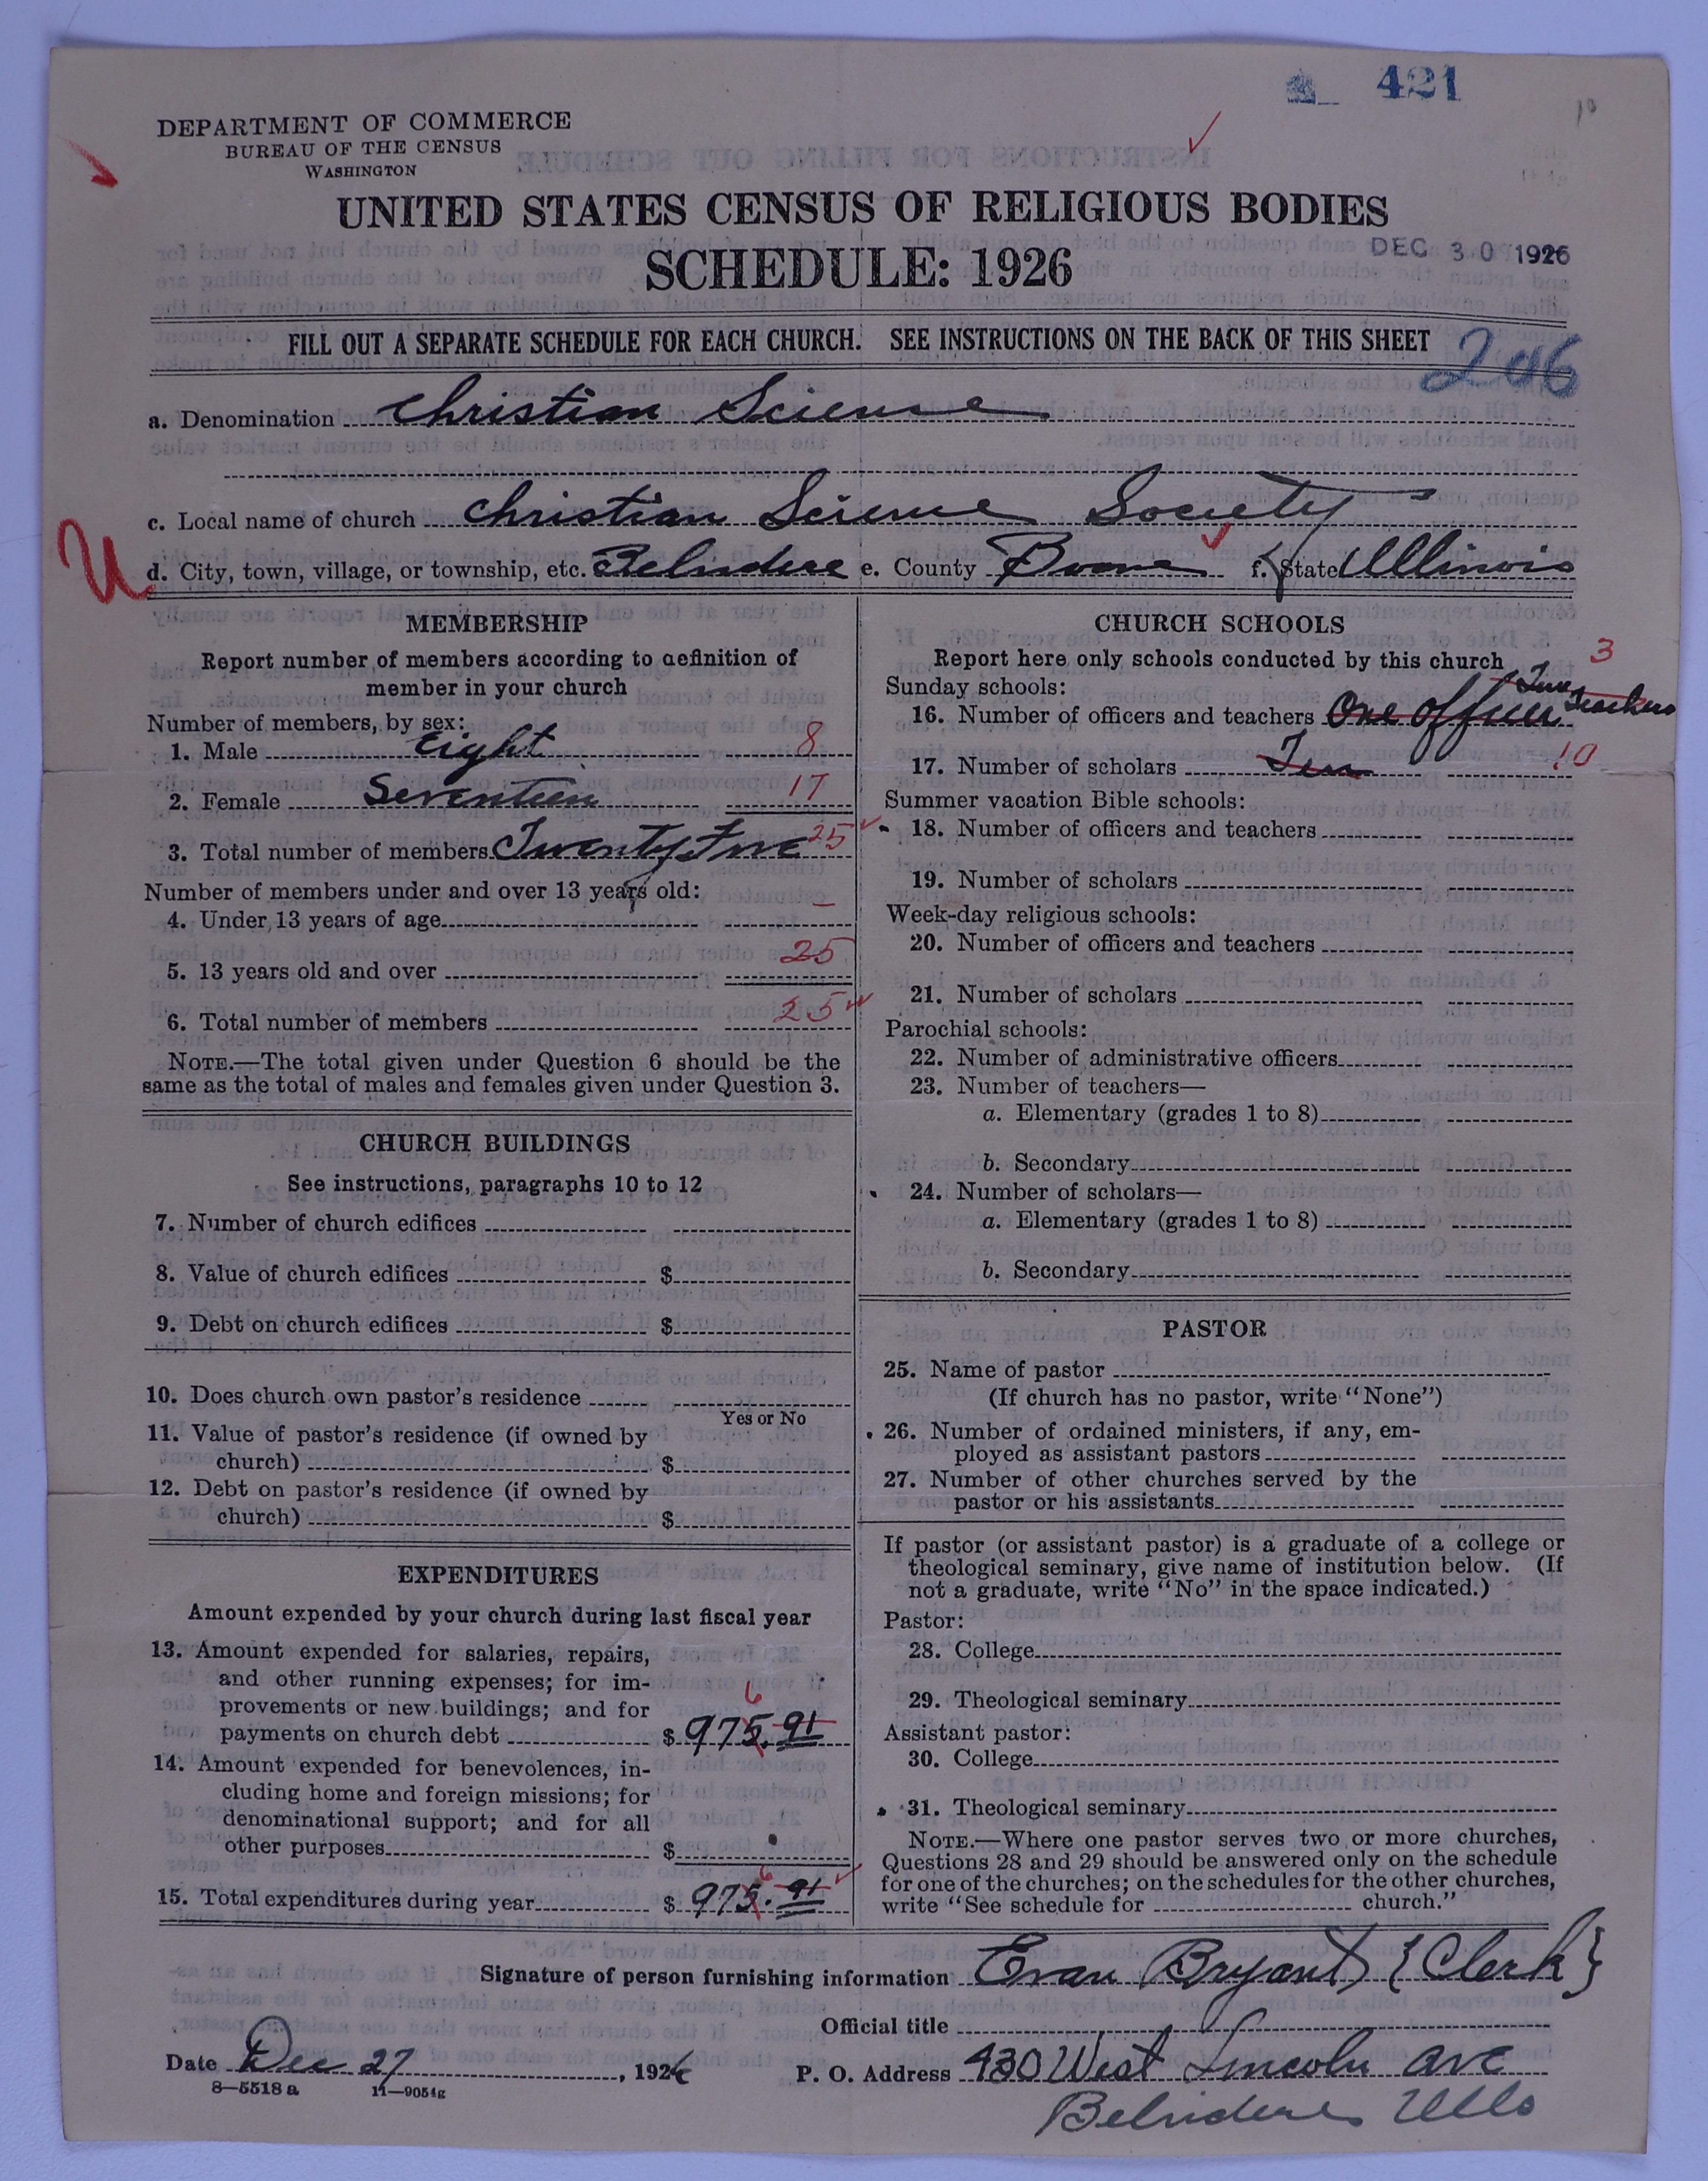 421
DEPARTMENT OF COMMERCE
BUREAU OF THE CENSUS
WASHINGTON
UNITED STATES CENSUS OF RELIGIOUS BODIES
SCHEDULE: 1926
DEC 30 1926
FILL OUT A SEPARATE SCHEDULE FOR EACH CHURCH. SEE INSTRUCTIONS ON THE BACK OF THIS SHEET
206
a. Denomination Christian Science
c. Local name of church Christian Science Society
U
d. City, town, village, or township, etc. Belvidere e. County Boone f. State Illinois
MEMBERSHIP
Report number of members according to definition of
member in your church
Number of members, by sex:
1. Male eight 8
2. Female Seventeen 17
3. Total number of members Twenty Five 25
Number of members under and over 13 years old:
4. Under 13 years of age —
5. 13 years old and over 25
6. Total number of members 25
NOTE.—The total given under Question 6 should be the
same as the total of males and females given under Question 3.
CHURCH BUILDINGS
See instructions, paragraphs 10 to 12
7. Number of church edifices
8. Value of church edifices $
9. Debt on church edifices $
10. Does church own pastor's residence
Yes or No
11. Value of pastor's residence (if owned by
church) $
12. Debt on pastor's residence (if owned by
church) $
EXPENDITURES
Amount expended by your church during last fiscal year
13. Amount expended for salaries, repairs,
and other running expenses; for im-
provements or new buildings; and for
6
payments on church debt $ 975.91
14. Amount expended for benevolences, in-
cluding home and foreign missions; for
denominational support; and for all
other purposes $
6
15. Total expenditures during year $ 975.91
CHURCH SCHOOLS
Report here only schools conducted by this church
3
Sunday schools:
16. Number of officers and teachers One officer Two Teachers
17. Number of scholars Ten 10
Summer vacation Bible schools:
18. Number of officers and teachers
19. Number of scholars
Week-day religious schools:
20. Number of officers and teachers
21. Number of scholars
Parochial schools:
22. Number of administrative officers
23. Number of teachers—
a. Elementary (grades 1 to 8)
b. Secondary
24. Number of scholars—
a. Elementary (grades 1 to 8)
b. Secondary
PASTOR
25. Name of pastor
(If church has no pastor, write "None")
26. Number of ordained ministers, if any, em-
ployed as assistant pastors
27. Number of other churches served by the
pastor or his assistants
If pastor (or assistant pastor) is a graduate of a college or
theological seminary, give name of institution below. (If
not a graduate, write "No" in the space indicated.)
Pastor:
28. College
29. Theological seminary
Assistant pastor:
30. College
31. Theological seminary
NOTE.—Where one pastor serves two or more churches,
Questions 28 and 29 should be answered only on the schedule
for one of the churches; on the schedules for the other churches,
write "See schedule for church."
Signature of person furnishing information Evan Bryant {Clerk}
Official title
Date Dec 27, 1926 P. O. Address 430 West Lincoln Ave
8—5518 a 11—9054g
Belvidere Ills